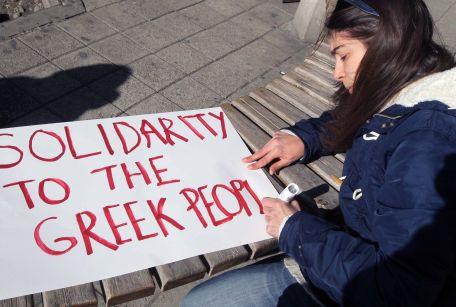 SOLIDARITY
TO THE
GREEK PEOPL